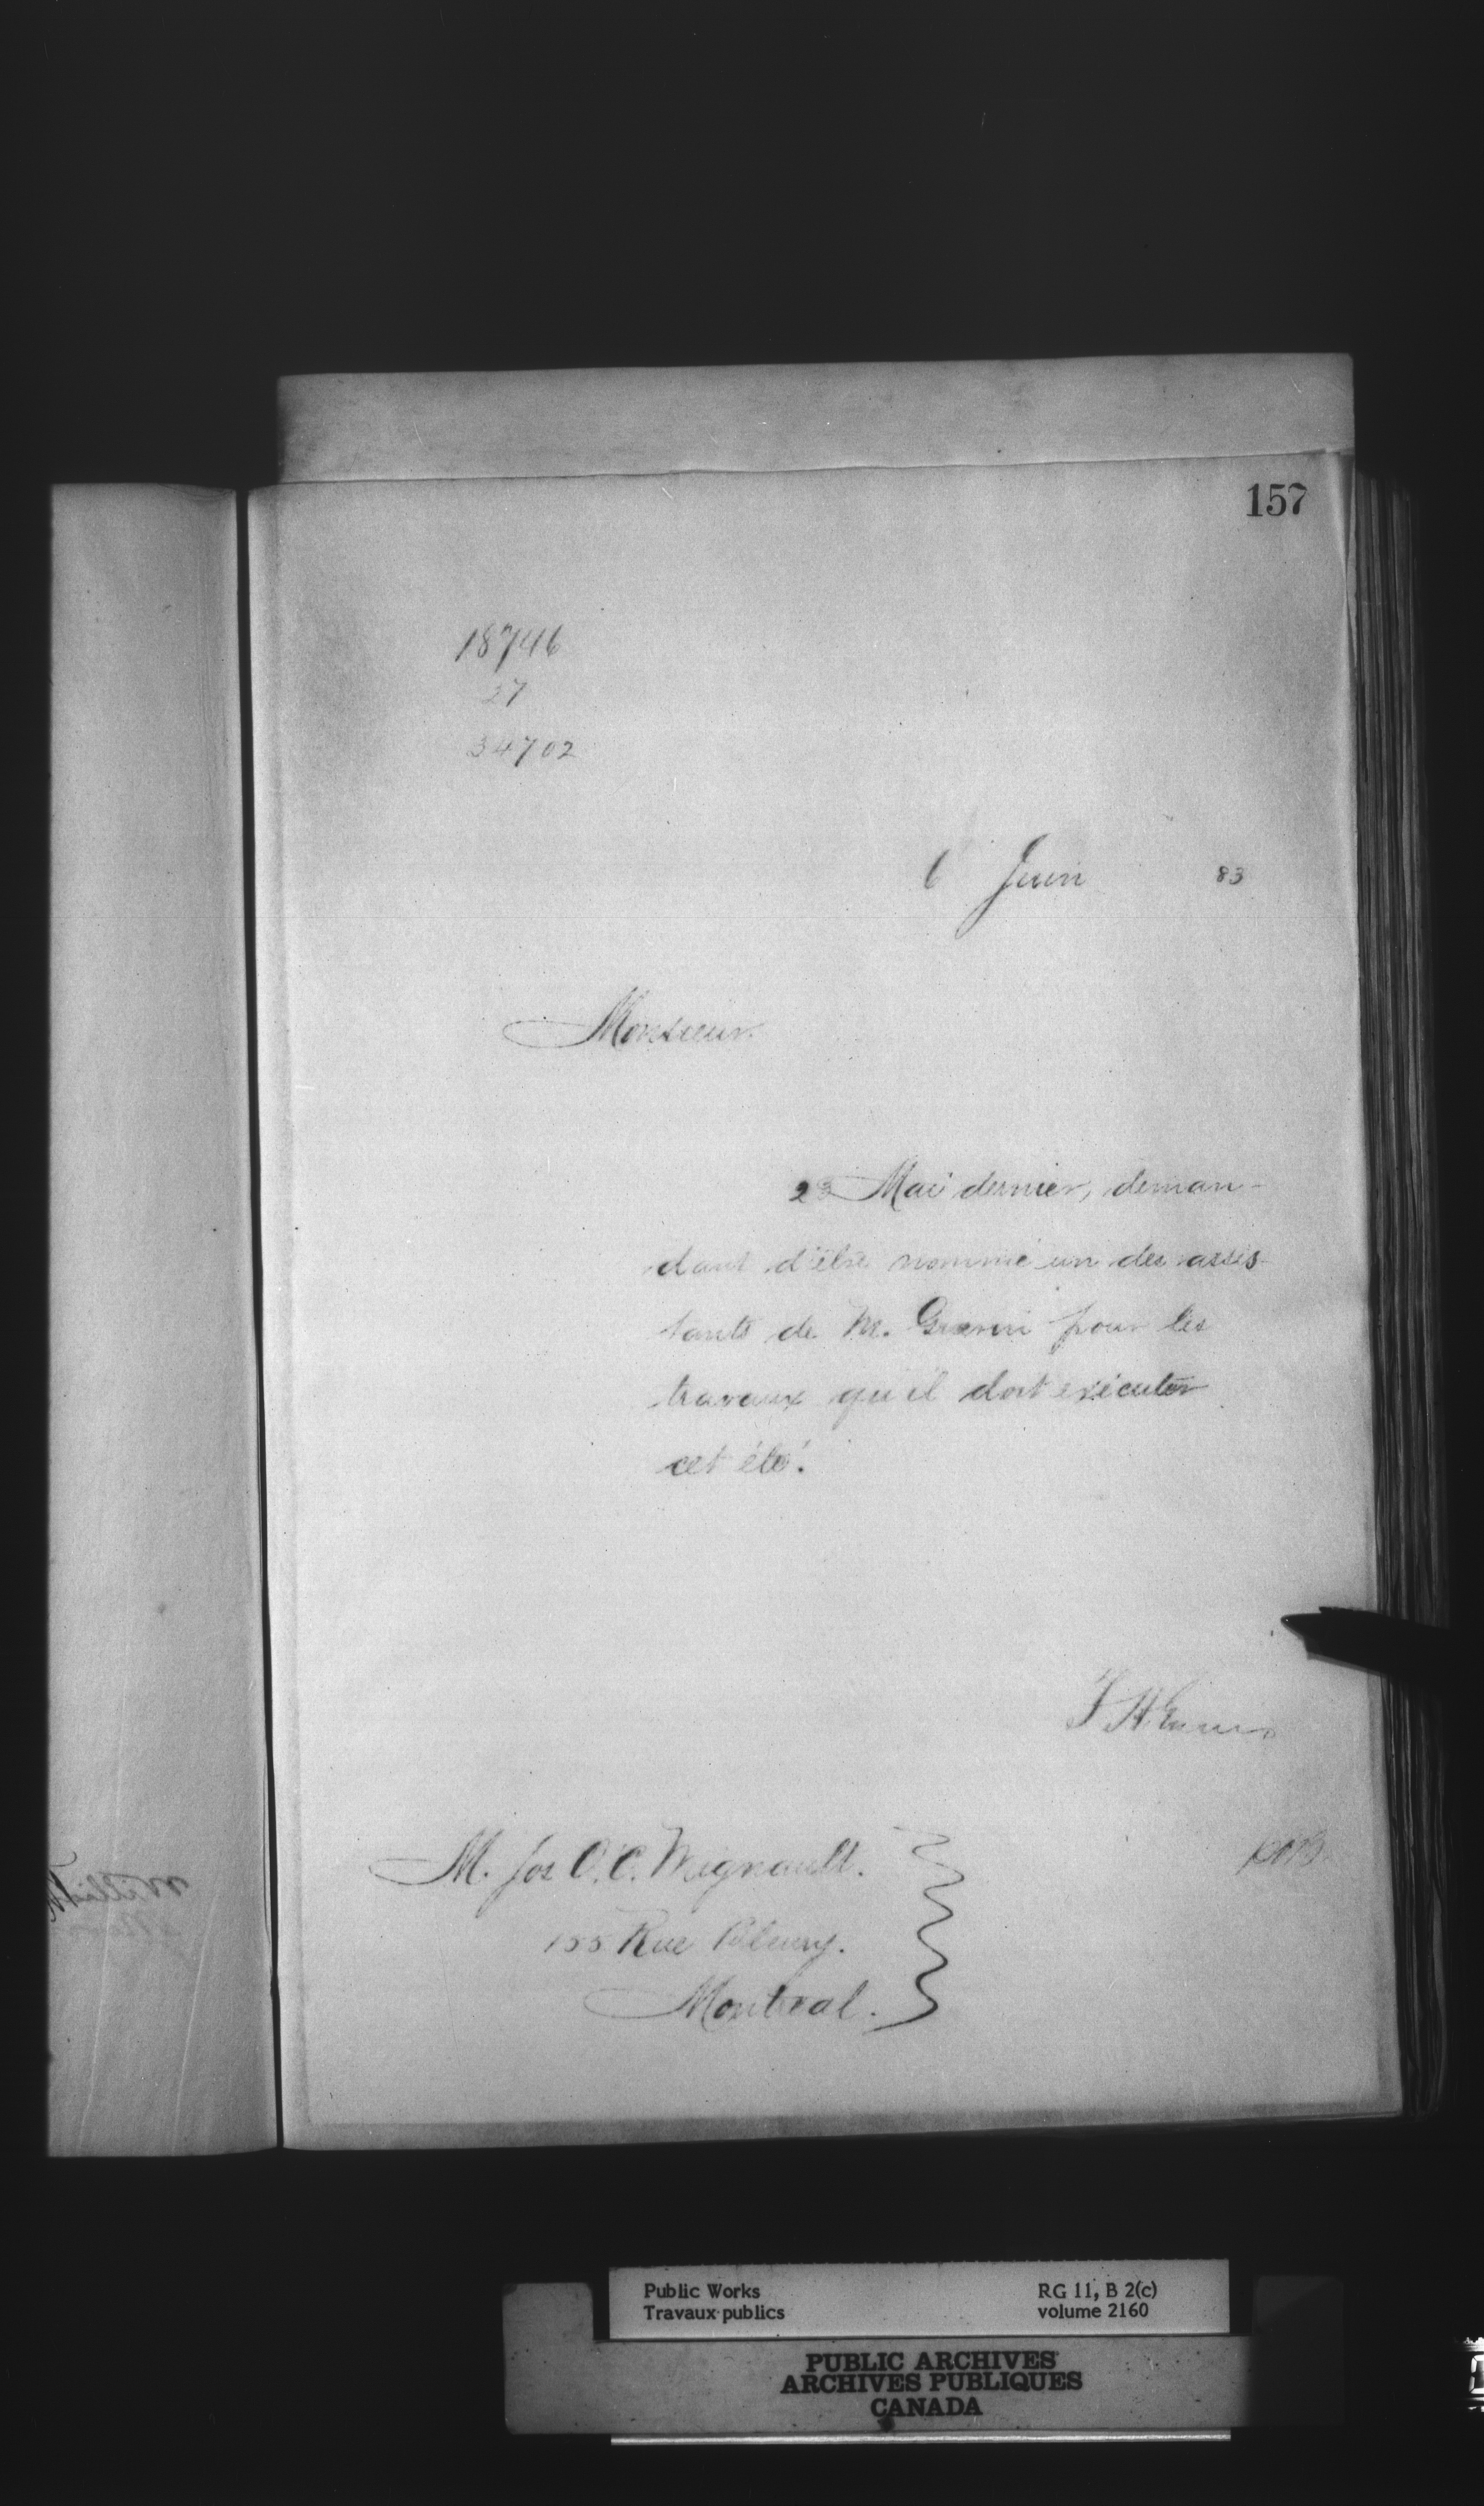 157
18746
27
34702
6 Juin 83
Monsieur.
23 Mai dernier, deman-
dant d'être nommé un des assis-
tants de M. pour les
travaux qu'il doit exécuter
cet été.
F H Ennis
M. Jos O. C. Mignault.
155 Rue Bleury.
Montreal.
Public Works
Travaux publics
RG 11, B 2(c)
volume 2160
PUBLIC ARCHIVES
ARCHIVES PUBLIQUES
CANADA